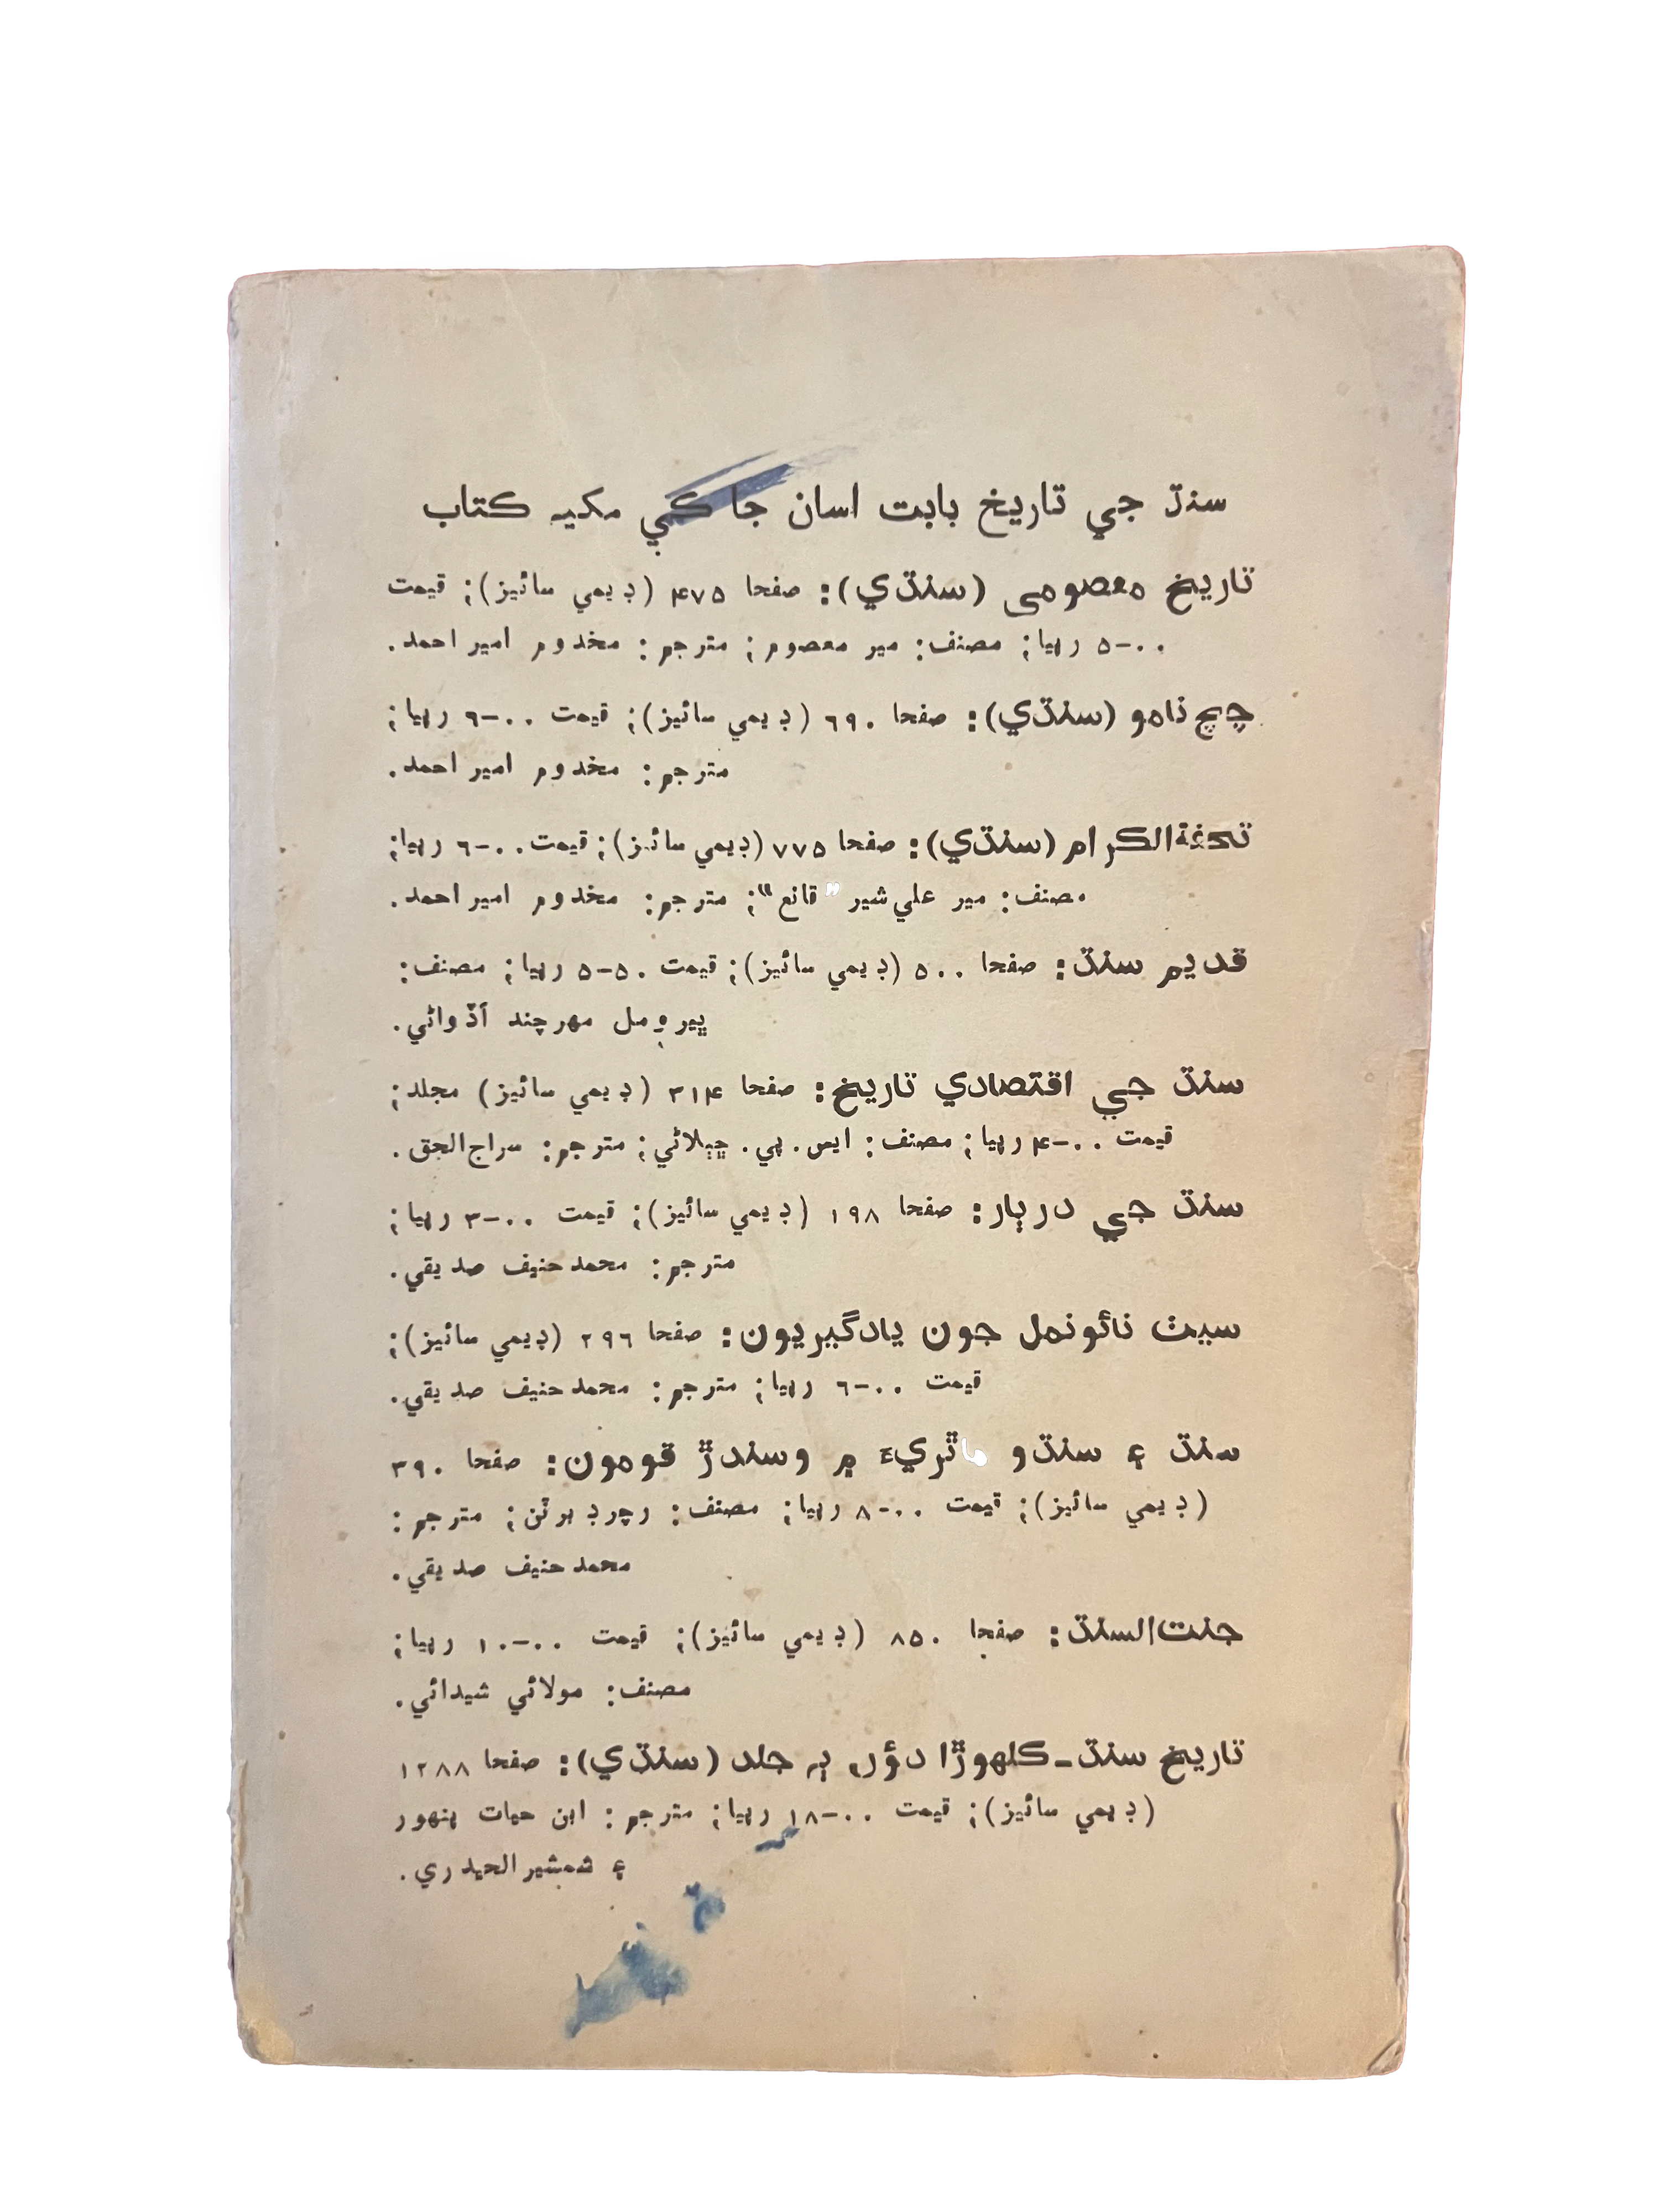 سنڌ جي تاريخ بابت اسان جا ڪي مکيه ڪتاب
تاريخ معصومي (سنڌي): صفحا ۴۷۵ (ڊيمي سائيز)؛ قيمت
۰۰-۵ رپيا؛ مصنف: مير معصوم؛ مترجم: مخدوم امير احمد.
چچ نامو (سنڌي): صفحا ۶۹۰ (ڊيمي سائيز)؛ قيمت ۰۰-۶ رپيا؛
مترجم: مخدوم امير احمد.
تحفةالڪرام (سنڌي): صفحا ۷۷۵ (ڊيمي سائيز)؛ قيمت ۰۰-۶ رپيا؛
مصنف: مير علي شير "قانع"؛ مترجم: مخدوم امير احمد.
قديم سنڌ: صفحا ۵۰۰ (ڊيمي سائيز)؛ قيمت ۵۰-۵ رپيا؛ مصنف:
ڀيرومل مهرچند آڏواڻي.
سنڌ جي اقتصادي تاريخ: صفحا ۳۱۴ (ڊيمي سائيز) مجلد؛
قيمت ۰۰-۴ رپيا؛ مصنف: ايس. پي. ڇٻلاڻي؛ مترجم: سراج‌الحق.
سنڌ جي درٻار: صفحا ۱۹۸ (ڊيمي سائيز)؛ قيمت ۰۰-۳ رپيا؛
مترجم: محمد حنيف صديقي.
سيٺ نائونمل جون يادگيريون: صفحا ۲۹۶ (ڊيمي سائيز)؛
قيمت ۰۰-۶ رپيا؛ مترجم: محمد حنيف صديقي.
سنڌ ۽ سنڌو ماٿريءَ ۾ وسندڙ قومون: صفحا ۳۹۰
(ڊيمي سائيز)؛ قيمت ۰۰-۸ رپيا؛ مصنف: رچرڊ برٽن؛ مترجم:
محمد حنيف صديقي.
جنت‌السنڌ: صفحا ۸۵۰ (ڊيمي سائيز)؛ قيمت ۰۰-۱۰ رپيا؛
مصنف: مولائي شيدائي.
تاريخ سنڌ-ڪلهوڙا دؤر، ٻه جلد (سنڌي): صفحا ۱۲۸۸
(ڊيمي سائيز)؛ قيمت ۰۰-۱۸ رپيا؛ مترجم: ابن حيات پنهور
۽ شمشيرالحيدري.